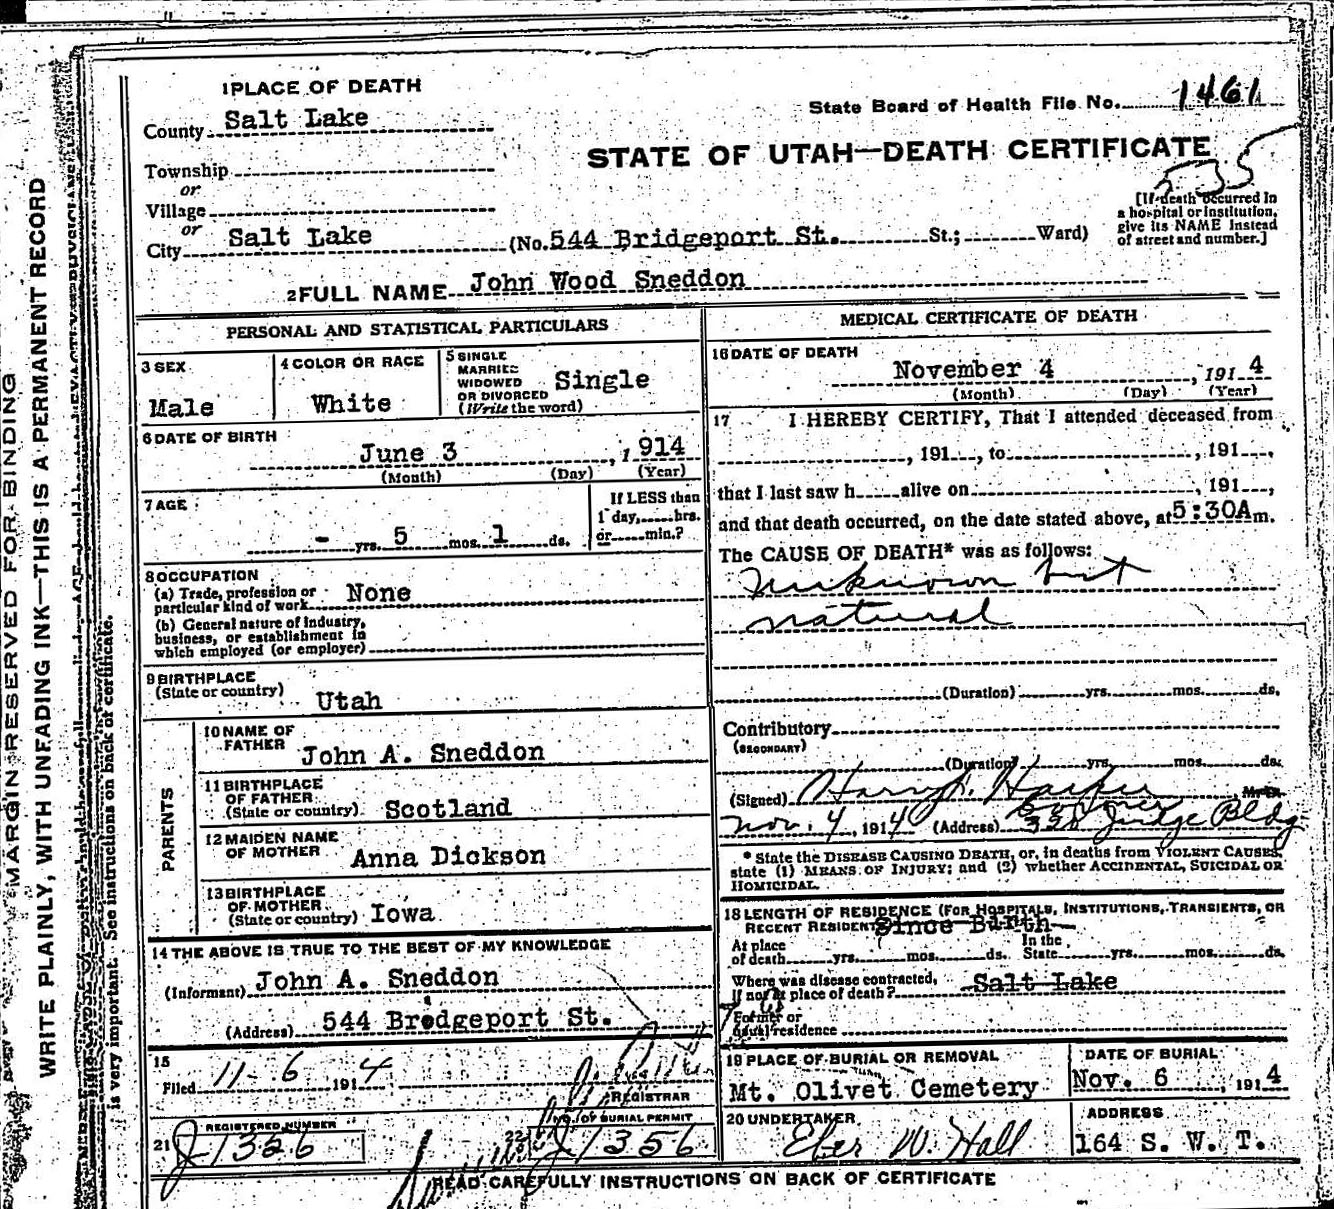 MARGIN RESERVED FOR BINDING
WRITE PLAINLY, WITH UNFADING INK—THIS IS A PERMANENT RECORD
is very important. See instructions on back of certificate.
1 PLACE OF DEATH
State Board of Health File No. 1461
County Salt Lake
STATE OF UTAH—DEATH CERTIFICATE
535
Township
or
Village
or
City Salt Lake (No. 544 Bridgeport St. St.; Ward)
[If death occurred in
a hospital or institution,
give its NAME instead
of street and number.]
2 FULL NAME John Wood Sneddon
PERSONAL AND STATISTICAL PARTICULARS
3 SEX
Male
4 COLOR OR RACE
White
5 SINGLE
MARRIED
WIDOWED
OR DIVORCED
(Write the word)
Single
6 DATE OF BIRTH
June 3, 1914
(Month) (Day) (Year)
7 AGE
- yrs. 5 mos. 1 ds.
If LESS than
1 day, hrs.
or min.?
8 OCCUPATION
(a) Trade, profession or
particular kind of work None
(b) General nature of industry,
business, or establishment in
which employed (or employer)
9 BIRTHPLACE
(State or country) Utah
PARENTS
10 NAME OF
FATHER John A. Sneddon
11 BIRTHPLACE
OF FATHER
(State or country) Scotland
12 MAIDEN NAME
OF MOTHER Anna Dickson
13 BIRTHPLACE
OF MOTHER
(State or country) Iowa
14 THE ABOVE IS TRUE TO THE BEST OF MY KNOWLEDGE
(Informant) John A. Sneddon
(Address) 544 Bredgeport St.
15
Filed 11-6 1914
REGISTRAR
21 REGISTERED NUMBER
J1326
22 NO. OF BURIAL PERMIT
J1356
MEDICAL CERTIFICATE OF DEATH
16 DATE OF DEATH
November 4, 1914
(Month) (Day) (Year)
17 I HEREBY CERTIFY, That I attended deceased from
, 191 , to , 191 ,
that I last saw h alive on , 191 ,
and that death occurred, on the date stated above, at 5:30A m.
The CAUSE OF DEATH* was as follows:
unknown but
natural
(Duration) yrs. mos. ds.
Contributory
(SECONDARY)
(Duration) yrs. mos. ds.
(Signed) Harry Harper, M. D.
Nov. 4, 1914 (Address) Judge Bldg
* State the DISEASE CAUSING DEATH, or, in deaths from VIOLENT CAUSES,
state (1) MEANS OF INJURY; and (2) whether ACCIDENTAL, SUICIDAL OR
HOMICIDAL.
18 LENGTH OF RESIDENCE (FOR HOSPITALS, INSTITUTIONS, TRANSIENTS, OR
RECENT RESIDENT Since Birth
At place
of death yrs. mos. ds. In the
State yrs. mos. ds.
Where was disease contracted,
If not at place of death? Salt Lake
Former or
usual residence
19 PLACE OF BURIAL OR REMOVAL
Mt. Olivet Cemetery
DATE OF BURIAL
Nov. 6, 1914
20 UNDERTAKER
Eber W. Hall
ADDRESS
164 S. W. T.
READ CAREFULLY INSTRUCTIONS ON BACK OF CERTIFICATE